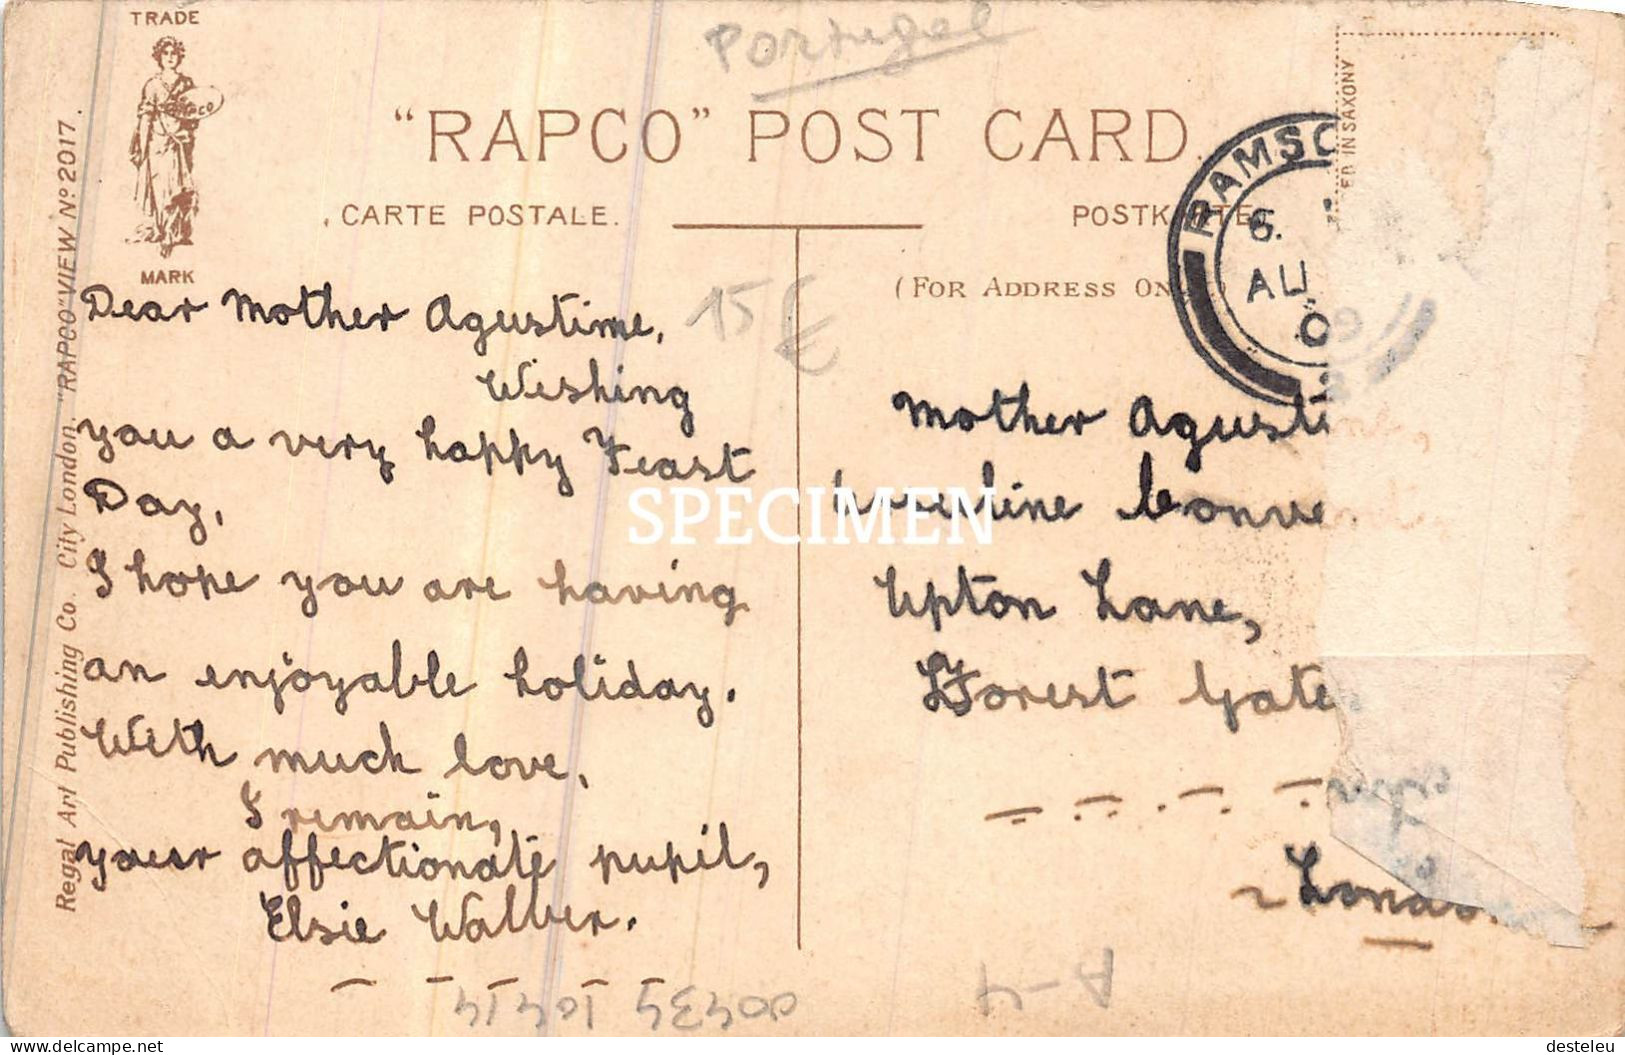 Portugal
TRADE
MARK
"RAPCO" POST CARD.
CARTE POSTALE.
POSTKARTE
(FOR ADDRESS ON
ED IN SAXONY
RAMSG
6.
AU
15€
Regal Art Publishing Co. City London. "RAPCO" VIEW Nº 2017.
Dear Mother Agustime,
Wishing
you a very happy Feast
Day,
I hope you are having
an enjoyable holiday.
With much love,
I remain,
your affectionate pupil,
Elsie
Mother Agusti
Urseline Conve
Upton Lane,
Forest Gate
London
SPECIMEN
A-4
delcampe.net
desteleu